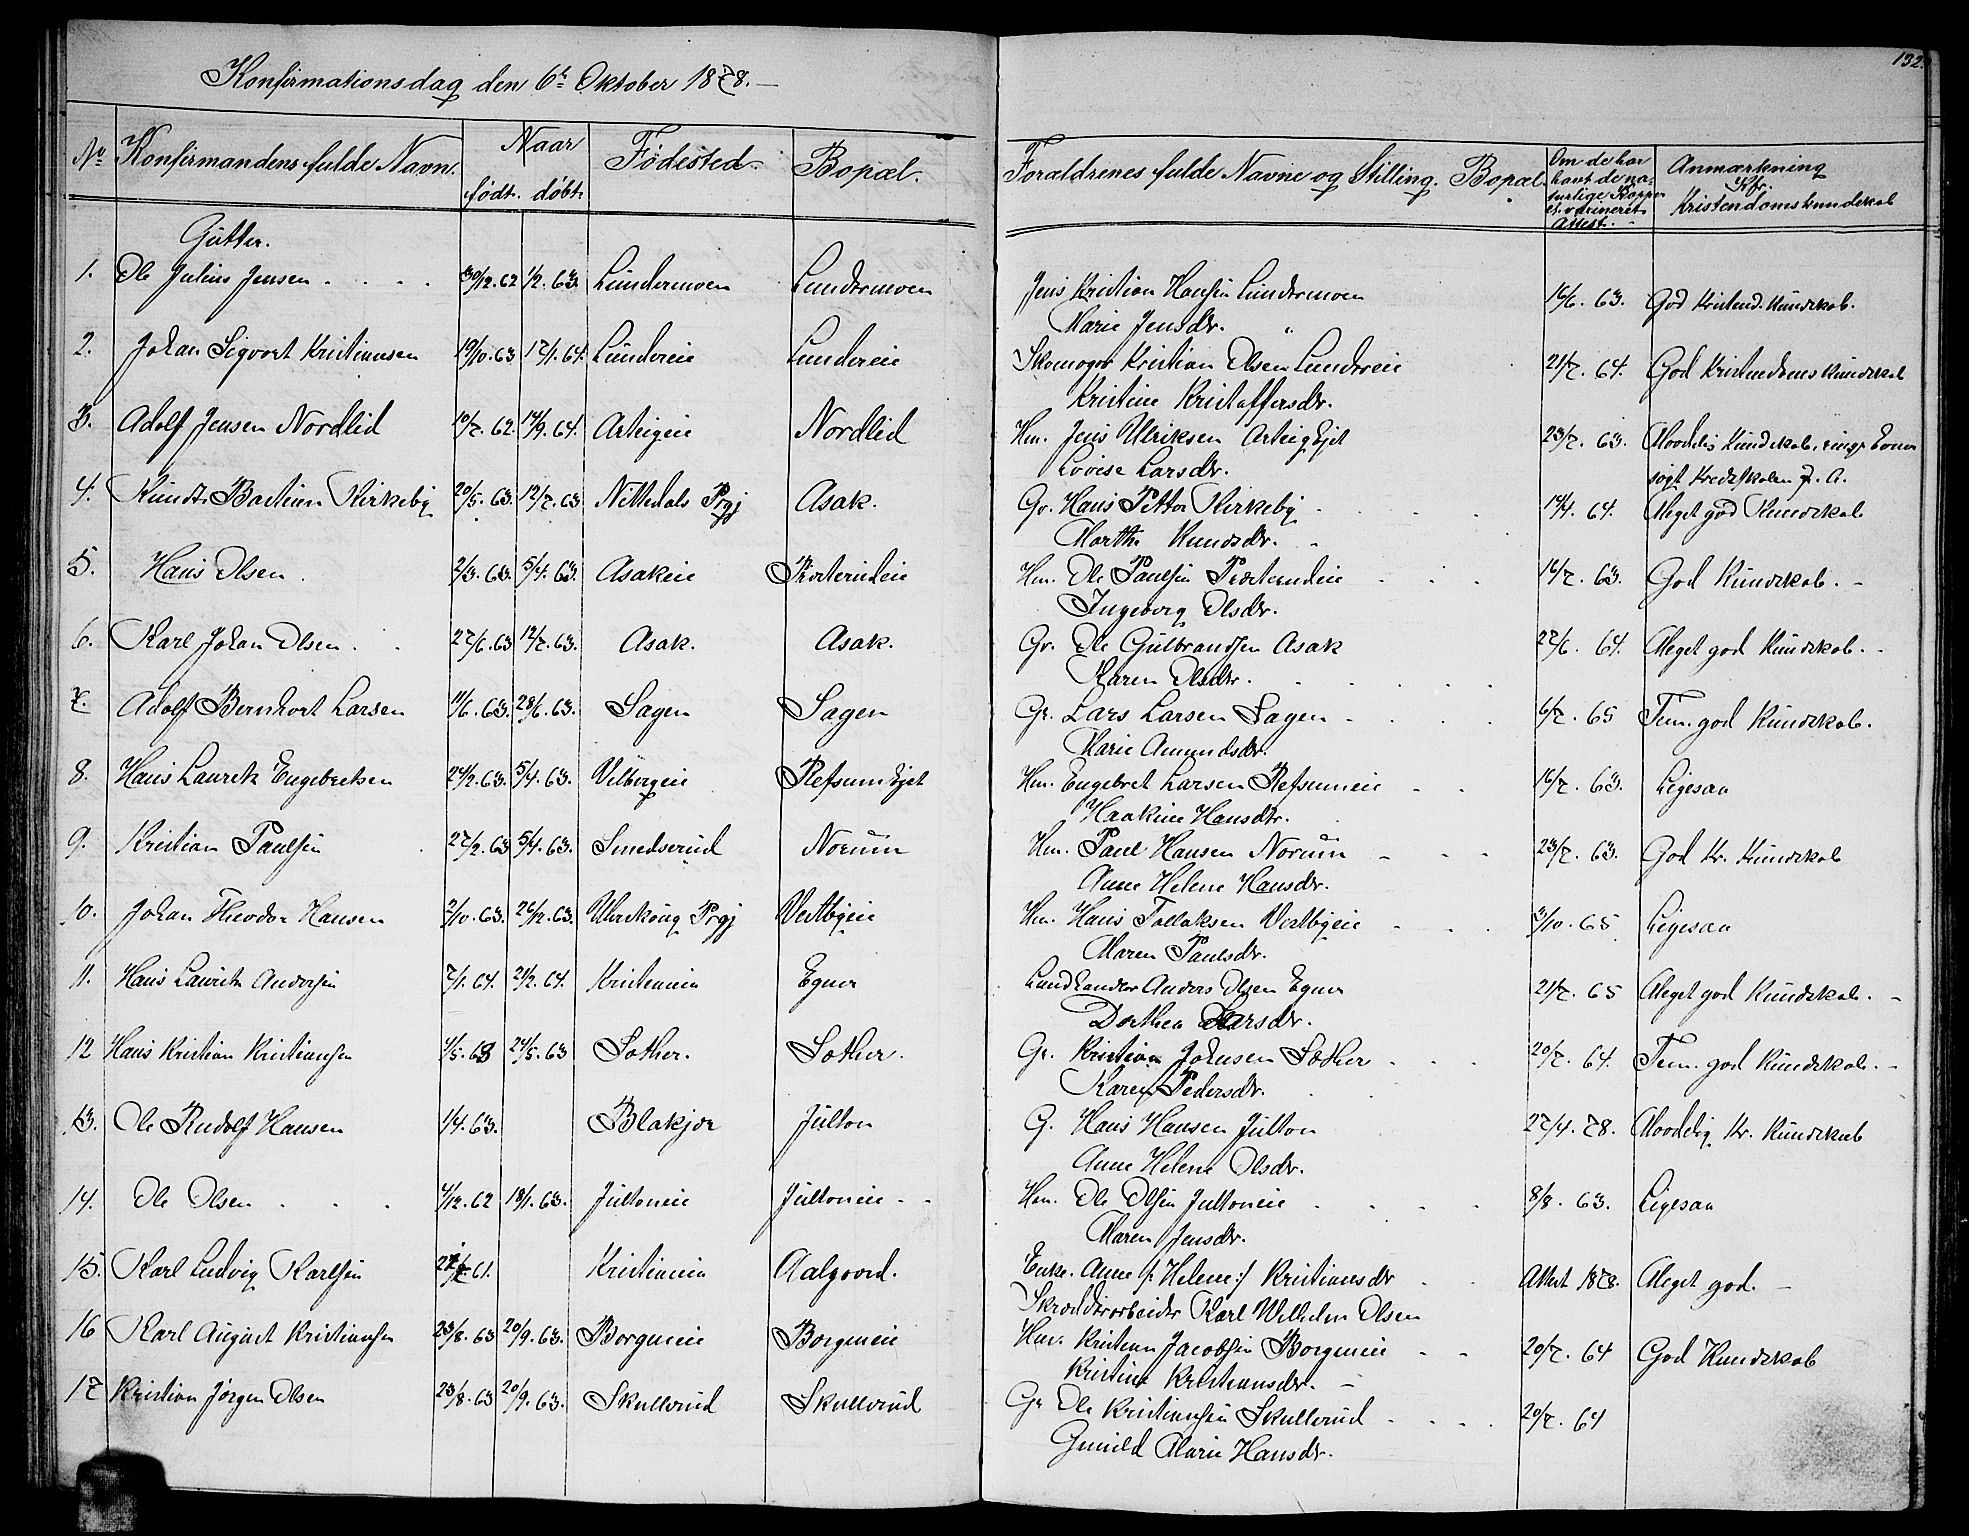 132.
Konfirmationsdag den 6t Oktober 1878.
No Konfirmandens fulde Navn. Naar født. døbt. Fødested. Bopæl. Forældrenes fulde Navne og Stilling. Bopæl. Om de har havt de naturlige Kopper el. vaccineret. Attest. Anmærkning Kfr. Kristendomskundskab
Gutter.
1. Ole Julius Jensen 30/12.62 1/2.63. Lundermoen Lundermoen Jens Kristian Hansen Lundermoen 16/6.63. God Kristend. Kundskab.
Marie Jensdr. "
2. Johan Sigvart Kristiansen 19/10.63 17/1.64. Lundereie Lundereie Skomager Kristian Olsen Lundereie 21/7.64. God Kristendoms Kundskab
Kristine Kristoffersdr.
3. Adolf Jensen Nordlid 10/7.62. 14/9.64. Arteigeie Nordlid Hm. Jens Ulriksen Arteig Ejet 23/7.63. Maadelig Kundskab, ringe Evner
Lovise Larsdr. søgt Kredsskolen
4. Knudt Bastian Kirkeby 20/5.63. 12/7.63 Nittedals Prgj Asak. Gr. Hans Petter Kirkeby 14/4.64. Meget god Kundskab
Marthe Knudsdr.
5. Hans Olsen 2/3.63. 5/4.63. Asakeie Præsterudeie Hm. Ole Paulsen Præsterudeie 16/7.63. God Kundskab.
Ingeborg Olsdr.
6. Karl Johan Olsen 27/6.63 12/7.63. Asak. Asak. Gr. Ole Gulbrandsen Asak 27/6.64. Meget god Kundskab.
Karen Olsdr.
7. Adolf Bernhart Larsen 11/6.63. 28/6.63. Sagen Sagen Gr. Lars Larsen Sagen 6/7.65 Tem. god Kundskab.
Marie Amundsdr.
8. Hans Lauritz Engebretsen 24/2.63. 5/4.63. Vilbergeie Refsum Ejet Hm. Engebret Larsen Refsumeie 16/7.63. Ligesaa
Haakine Hansdtr.
9. Kristian Paulsen 27/2.63 5/4.63. Smedserud Norum Hm. Paul Hansen Norum 23/7.63. God Kr. Kundskab
Anne Helene Hansdr.
10. Johan Theodor Hansen 2/10.63. 26/12.63. Urskoug Prgj Vestbyeie Hm. Hans Tollaksen Vestbyeie 3/10.65 Ligesaa
Maren Paulsdr.
11. Hans Lauritz Andersen 7/1.64. 21/2.64. Kristiania Egner Landhandler Anders Olsen Egner 21/7.65 Meget god Kundskab.
Dorthea Larsdr.
12 Hans Kristian Kristiansen 4/5.63 24/5.63 Sother. Sother. Gr. Kristian Johnsen Sother 20/7.64. Tem. god Kundskab.
Karen Pedersdr.
13. Ole Rudolf Hansen 1/4.63. Blakjer Julton G. Hans Hansen Julton 27/4.78. Maadelig Kr. Kundskab
Anne Helene Olsdr.
14. Ole Olsen 4/12.62 18/1.63. Jultoneie Jultoneie Hm. Ole Olsen Jultoneie 8/8.63. Ligesaa
Maren Jensdr.
15. Karl Ludvig Karlsen 27/7.61. Kristiania Aalgaard. Enke. Anne /: Helene :/ Kristiansdr Attest 1878. Meget god.
Skrædderarbeider Karl Wilhelm Olsen
16 Karl August Kristiansen 23/8.63 20/9.63. Borgeneie Borgeneie Hm. Kristian Jacobsen Borgeneie 20/7.64 God Kundskab
Kristine Kristiansdr.
17 Kristian Jørgen Olsen 23/8.63 20/9.63. Skullerud Skullerud Gr Ole Kristiansen Skullerud 20/7.64
Gunild Marie Hansdr.